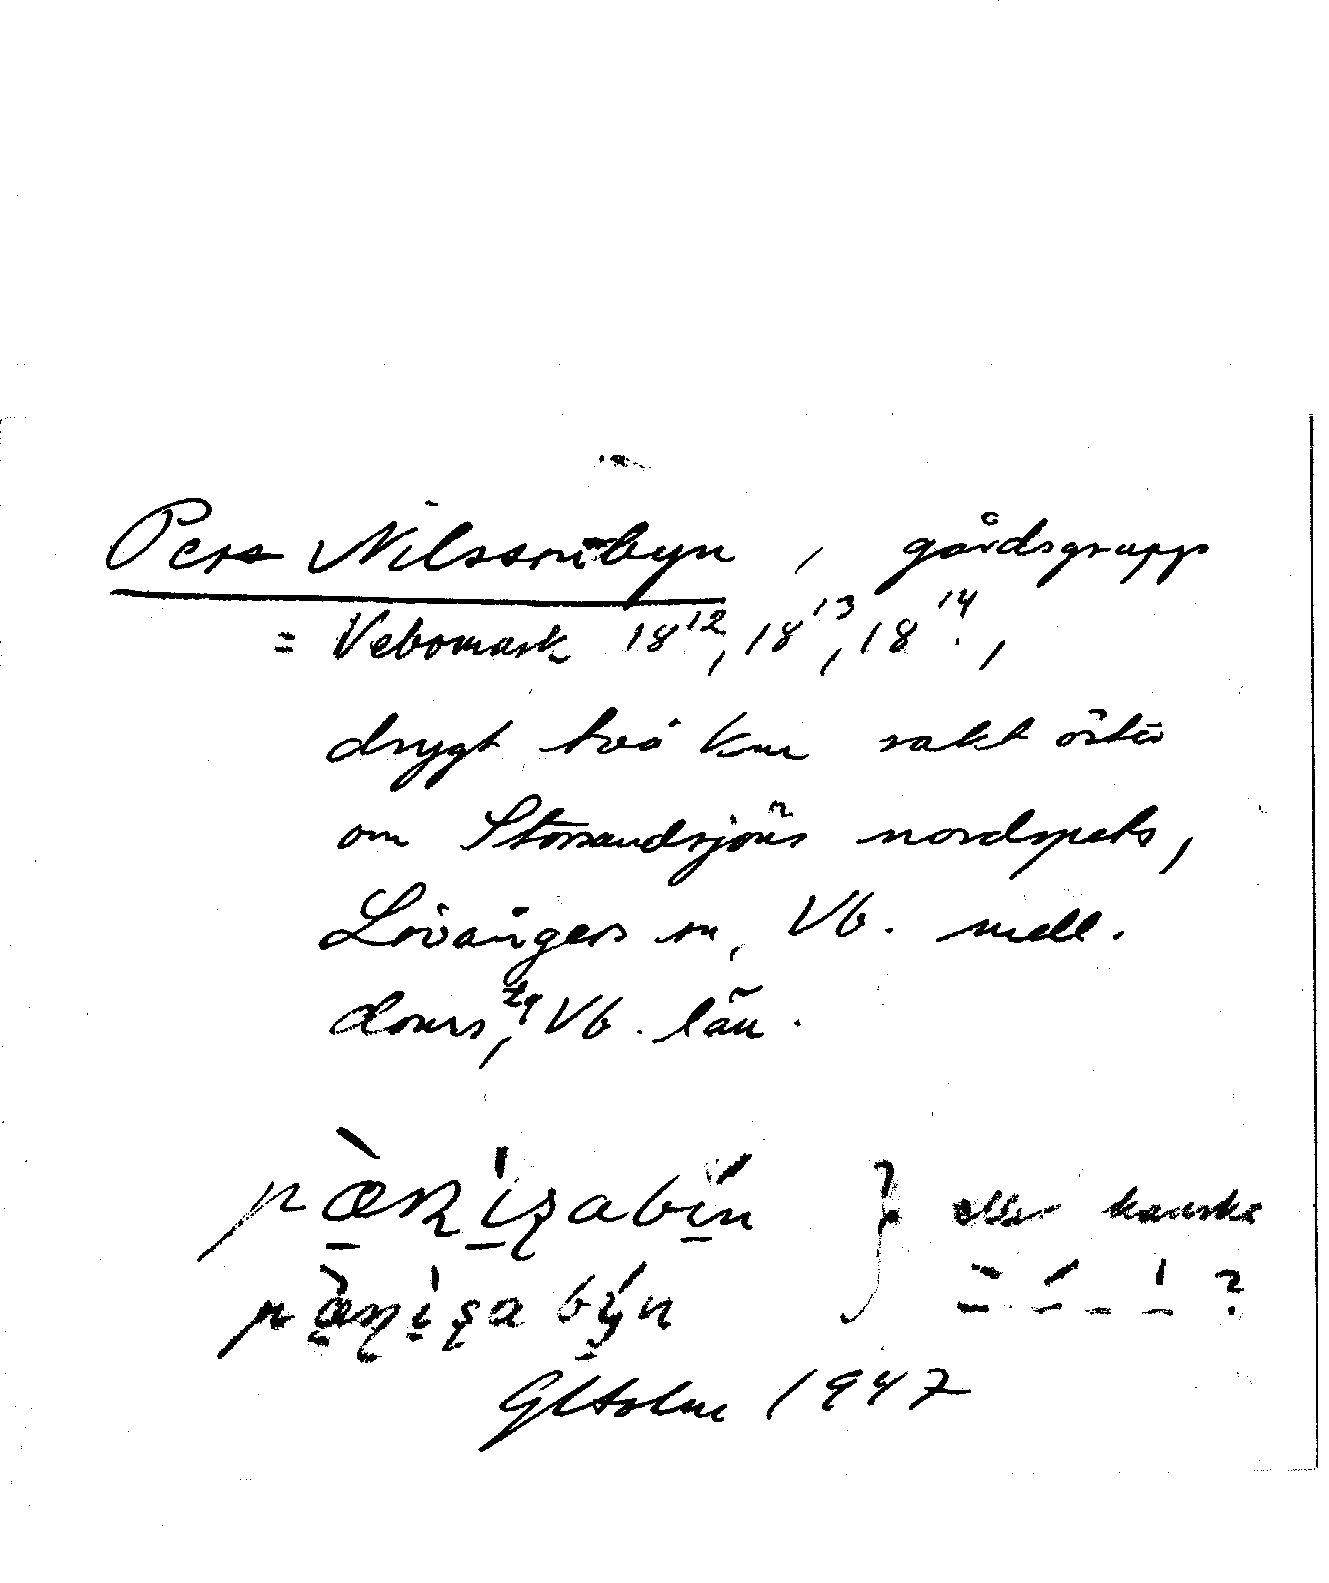 Pers Nilssonbyn, gårdsgrupp
= Vebomark 18¹², 18¹³, 18¹⁴,
drygt två km rakt öster
om Storsandsjöns nordspets,
Lövångers sn, Vb. mell.
doms tg, Vb. län.
} eller kanske
?
G Holm 1947